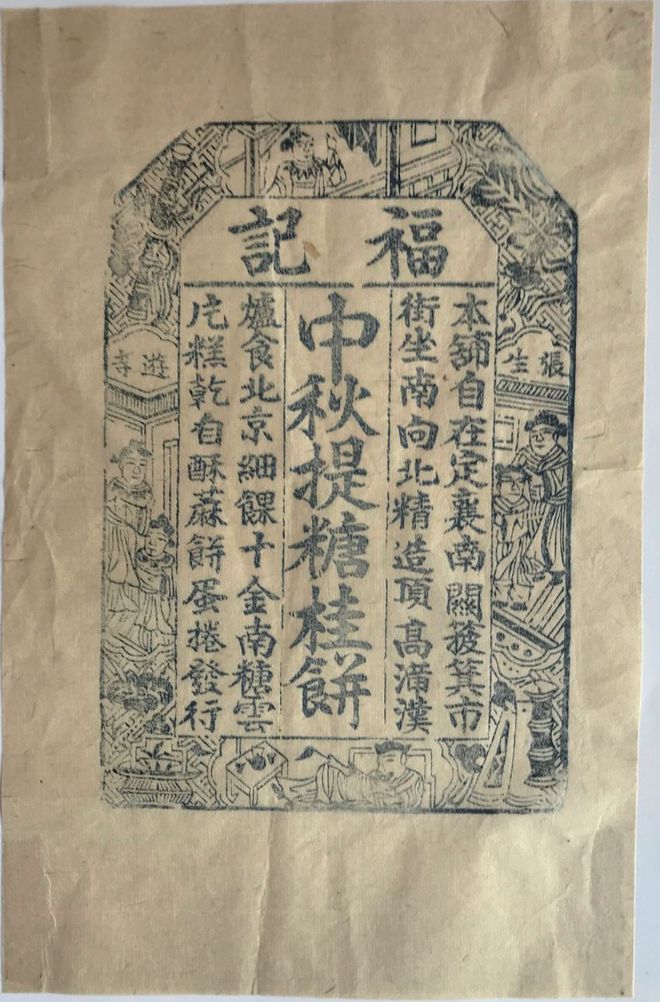 福記
本舖自在定襄南關簸箕市
街坐南向北精造頂高滿漢
中秋提糖桂餅
爐食北京細餜十金南糖雲
片糕乾自酥蔴餅蛋捲發行
張生
遊寺